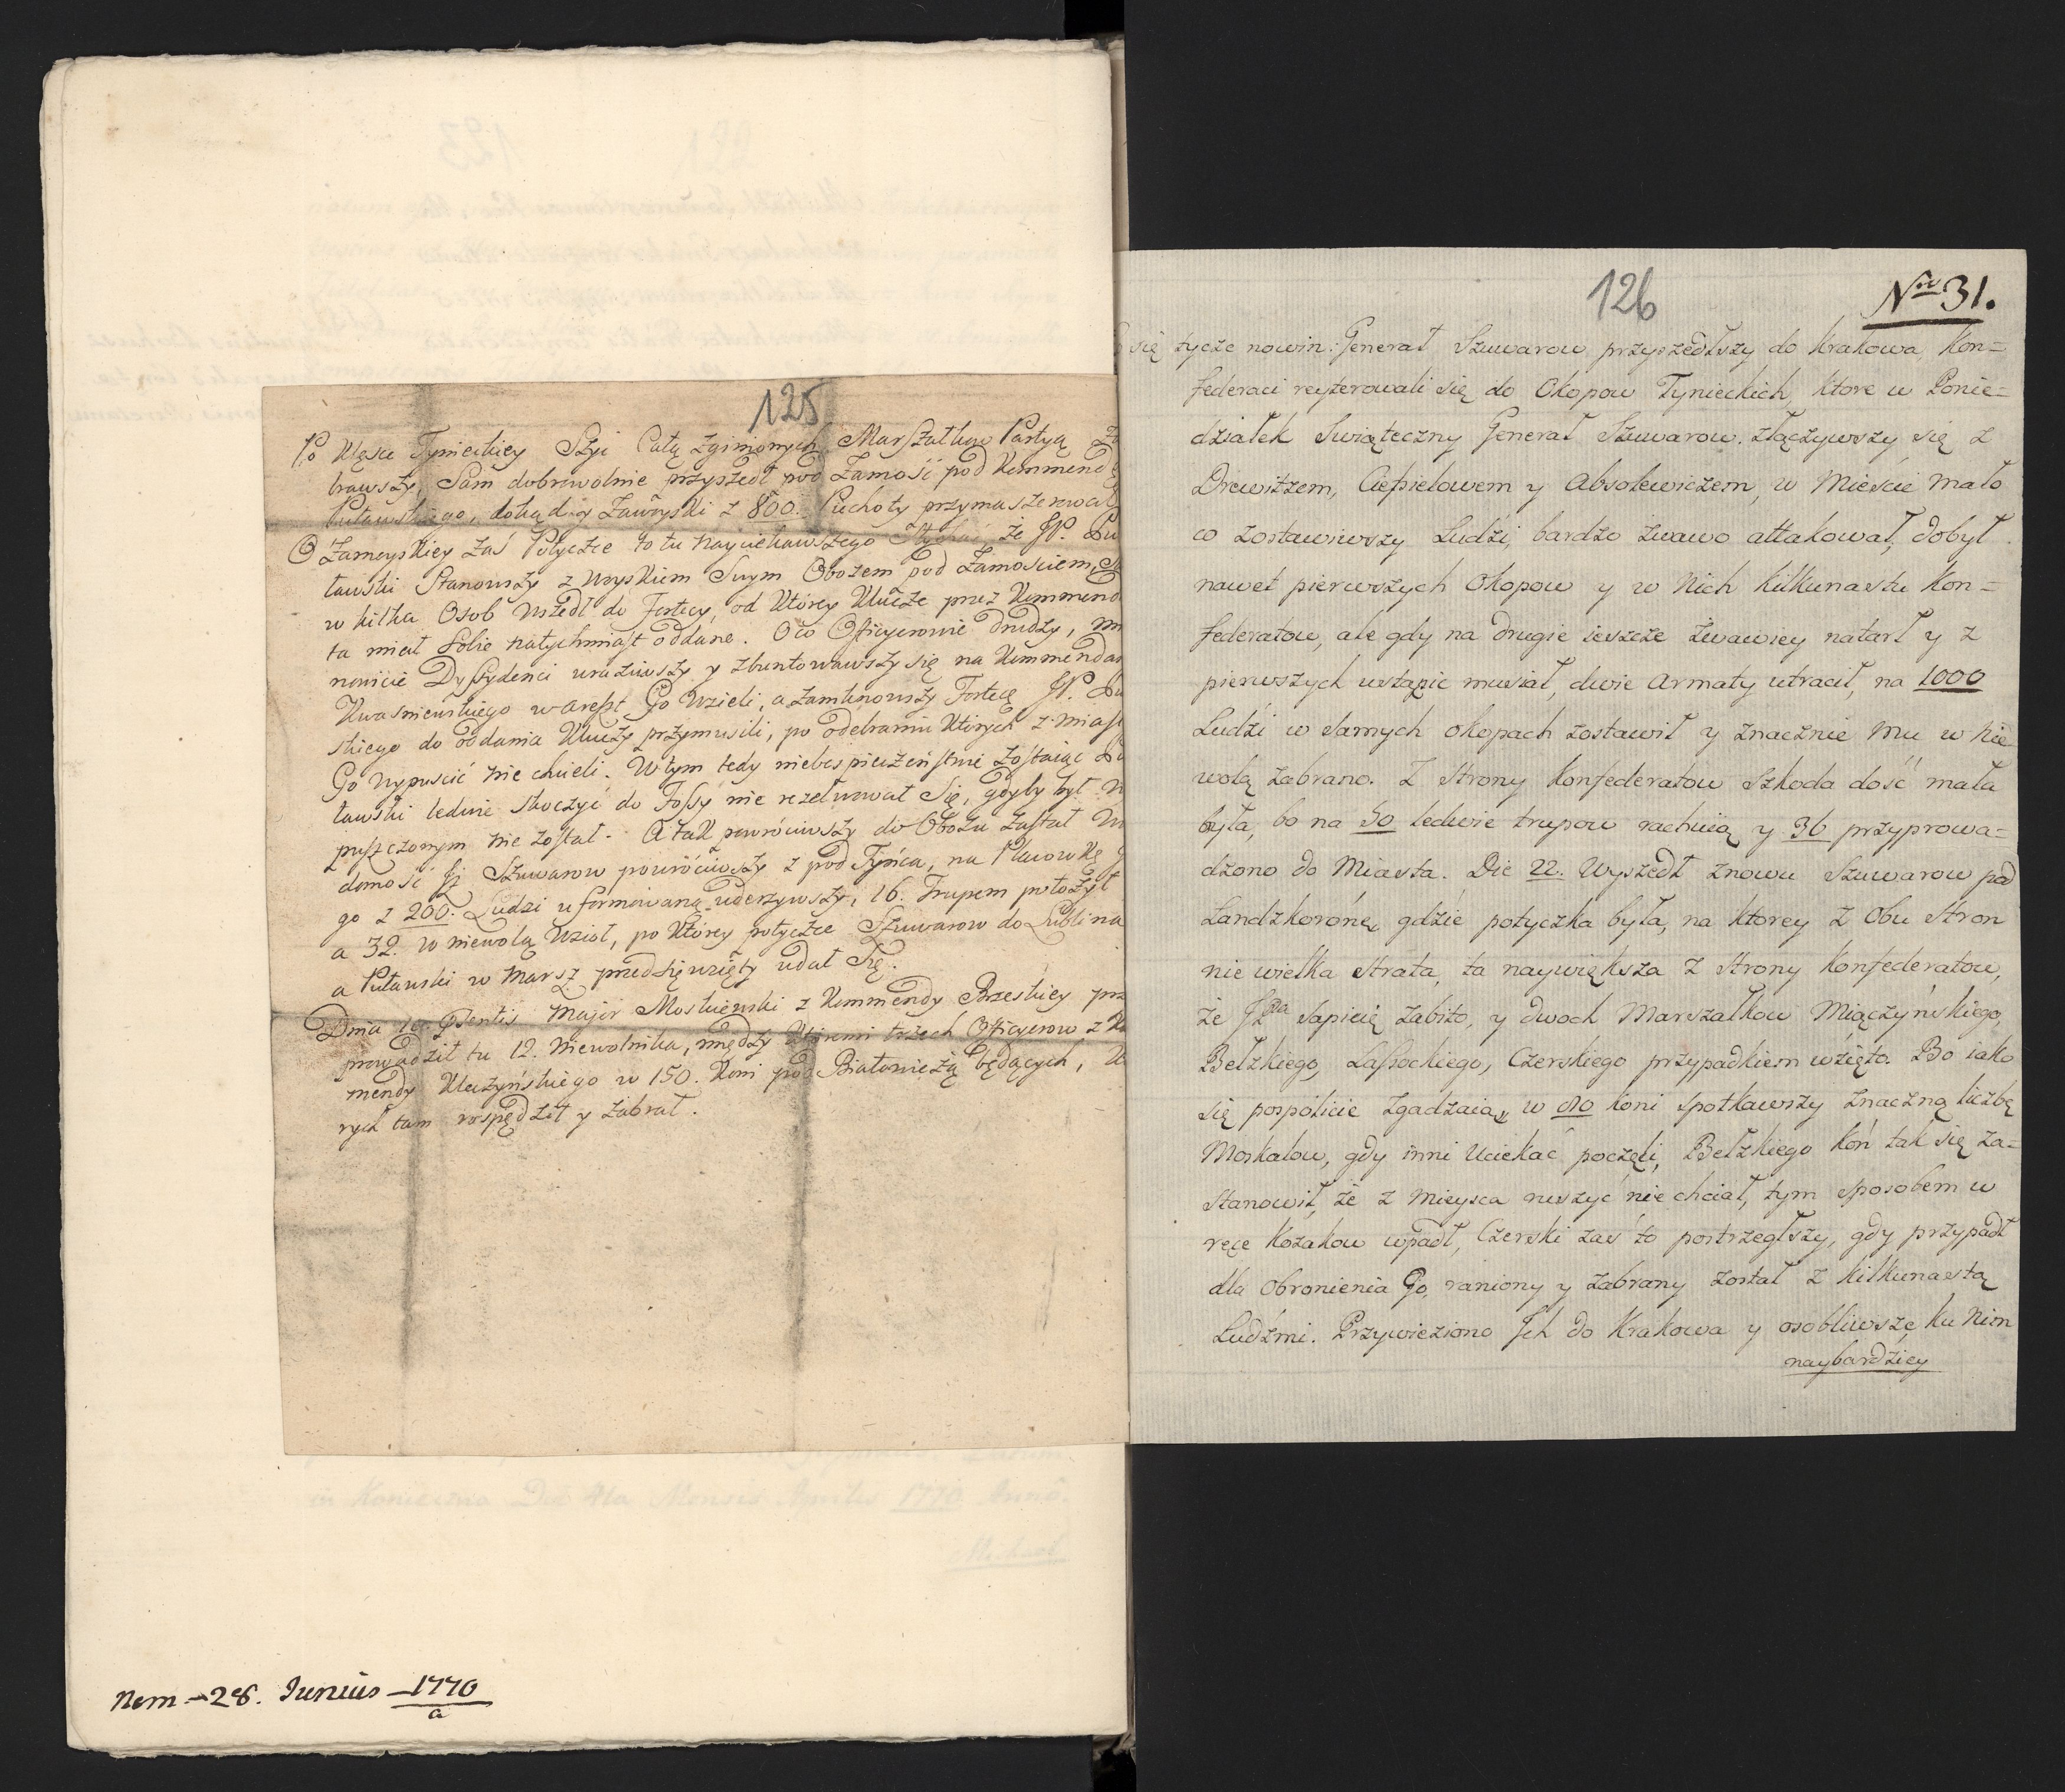 125
Po Klęsce Tynieckiey Szyc Całą zginionych Marszałkow Partyą
brawszy, Sam dobrowolnie przyszedł pod Zamość pod Kommendę
Puławskiego, dokąd y Zawoyski z 800. Piechoty przymaszerował
O Zamoyskiey zaś Potyczce to tu nayciekawszego Słychać, że JP. Pu
ławski Stanowszy z wszyskiem Swym Obozem pod Zamościem,
w kilka Osob wszedł do Fortecy, od Ktorey Klucze przez Kommend
ta miał Sobie natychmiast oddane. Oco Officyerowie drudzy, mia
nowicie Dyssydenci uraziwszy y zbuntowawszy się na Kommendan
Kwasniewskiego w areszt Go Wzieli, a zamknowszy Fortecę JP. Puław
skiego do oddania Kluczy przymusili, po odebraniu Ktorych z miast
Go wypuscić nie chcieli. W tym tedy niebespieczeństwie zostaiąc Pu
ławski ledwie skoczyć do Fossy nie rezolwował Się, gdyby był
puszczonym nie został. A tak powróciwszy do Obozu zastał Wia
domość Jż Szuwarow powróciwszy z pod Tyńca, na Placowkę Je
go z 200. Ludzi uformowaną uderzywszy, 16. Trupem położył
a 32. w niewolą Wziął, po Ktorey potyczce Szuwarow do Lublina
a Puławski w Marsz przedsięwzięty udał Się.
Dnia 10. Praesentis Major Moskiewski z Kommendy Brzeskiey przy
prowadził tu 12. Niewolnika, między Ktoremi trzech Officyerow, z Kom
mendy Kluczyńskiego w 150. Koni pod Białowieżą będących, Kto
rych tam rospędził y zabrał.
Nem - 28. Junius - 1770
a
126
Nro 31.
się tycze nowin: Generał Szuwarow przyszedłszy do Krakowa, Kon=
federaci reyterowali się do Okopow Tynieckich, ktore w Ponie=
działek Swiąteczny Generał Szuwarow. złączywszy się z
Drewitzem, Ciepielowem y Absolewiczem, w Mieście mało
co zostawiwszy Ludzi, bardzo żwawo attakował, dobył
nawet pierwszych Okopow y w Nich kilkunastu Kon=
federatow, ale gdy na drugie ieszcze żwawiey natarł y z
pierwszych ustąpic musiał, dwie Armaty utracił, na 1000
Ludzi w Samych okopach zostawił y znacznie Mu w Nie
wolą zabrano. Z Strony Konfederatow Szkoda dość mała
była, bo na 50 ledwie trupow rachuią y 36 przyprowa=
dzono do Miasta. Die 22. Wyszedł znowu Szuwarow pod
Landzkoronę, gdzie potyczka była, na ktorey z Obu Stron
nie wielka Strata, ta naywiększa z Strony Konfederatow,
że JPna Sapieię zabito, y dwoch Marszałkow Miączyńskiego,
Bełzkiego, Lassockiego, Czerskiego przypadkiem wzięto. Bo iako
się pospolicie zgadzaią, w 80 koni spotkawszy znaczną liczbę
Moskalow, gdy inni Uciekać poczęli, Bełzkiego koń tak się za=
stanowił, że z Mieysca ruszyć nie chciał, tym sposobem w
ręce Kozakow wpadł, Czerski zaś to postrzegłszy, gdy przypadł
dla Obronienia Go, raniony y zabrany został z kilkunastą
Ludźmi. Przywieziono Jch do Krakowa y osobliwszę ku Nim
naybardziey